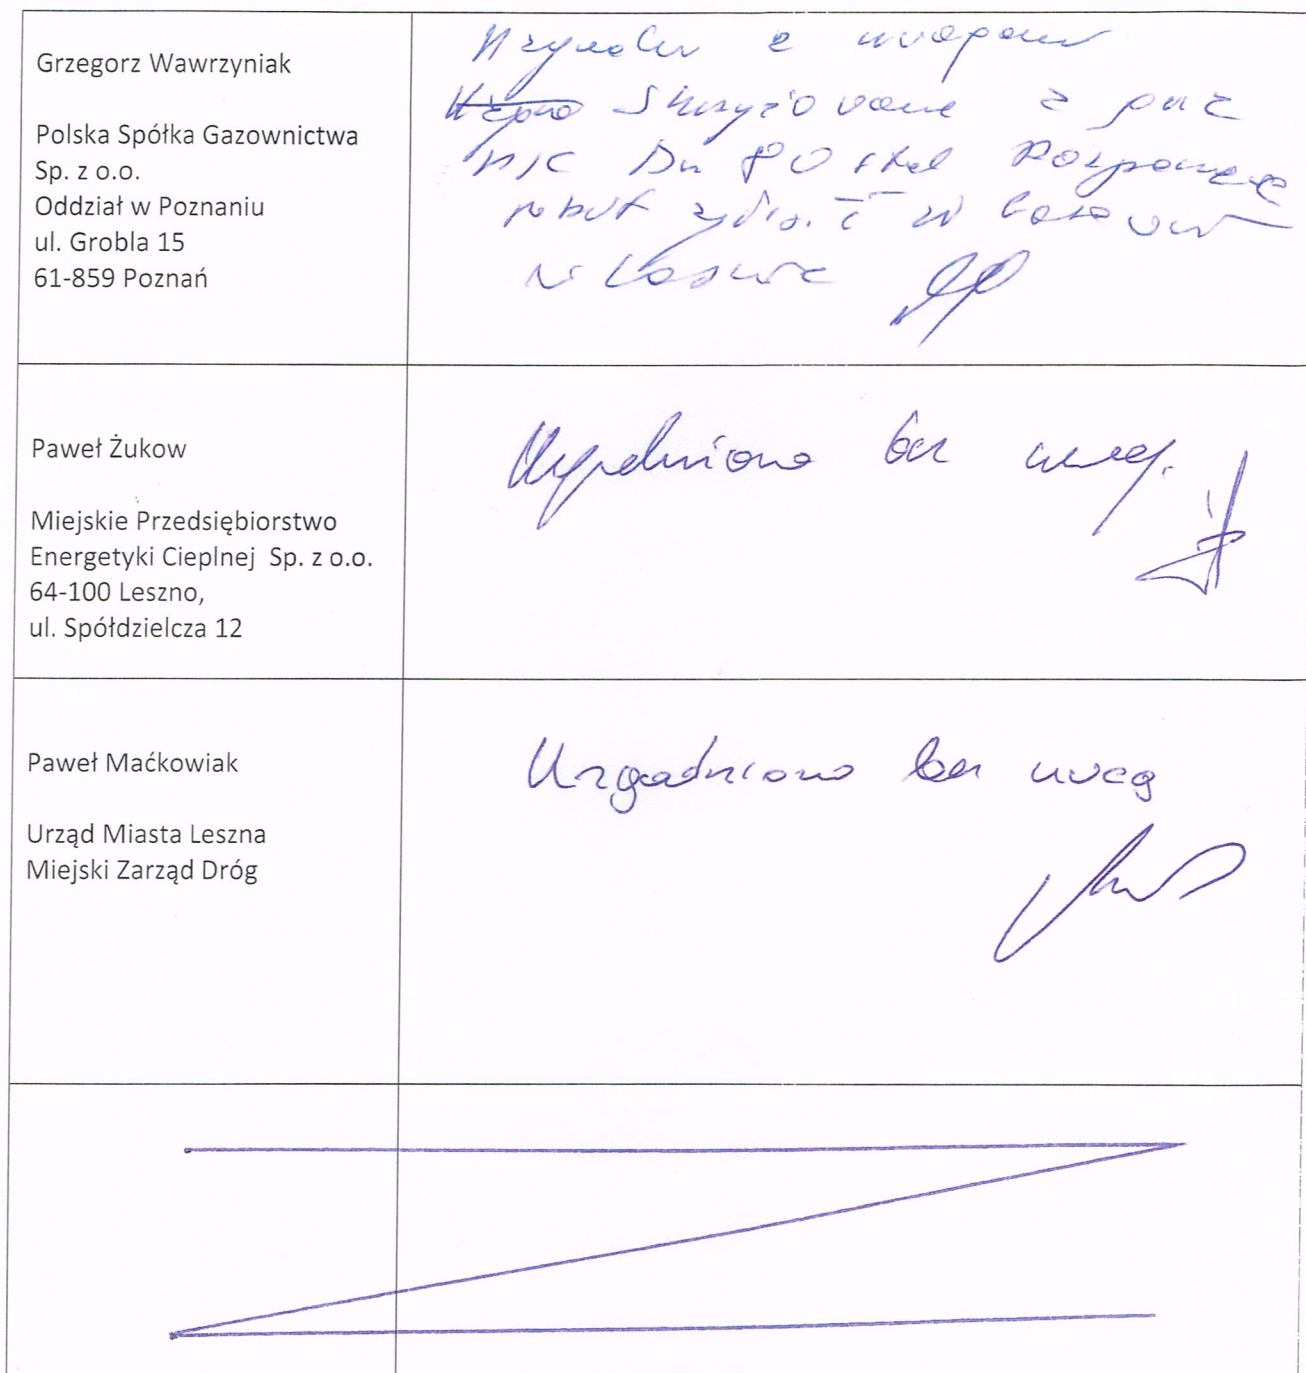 Grzegorz Wawrzyniak
Polska Spółka Gazownictwa
Sp. z o.o.
Oddział w Poznaniu
ul. Grobla 15
61-859 Poznań
z uwagami
Skrzyżowanie z gaz
n/c Dn 80 stal Rozpoczęcie
robót
Paweł Żukow
Miejskie Przedsiębiorstwo
Energetyki Cieplnej Sp. z o.o.
64-100 Leszno,
ul. Spółdzielcza 12
bez uwag.
Paweł Maćkowiak
Urząd Miasta Leszna
Miejski Zarząd Dróg
Uzgodniono bez uwag